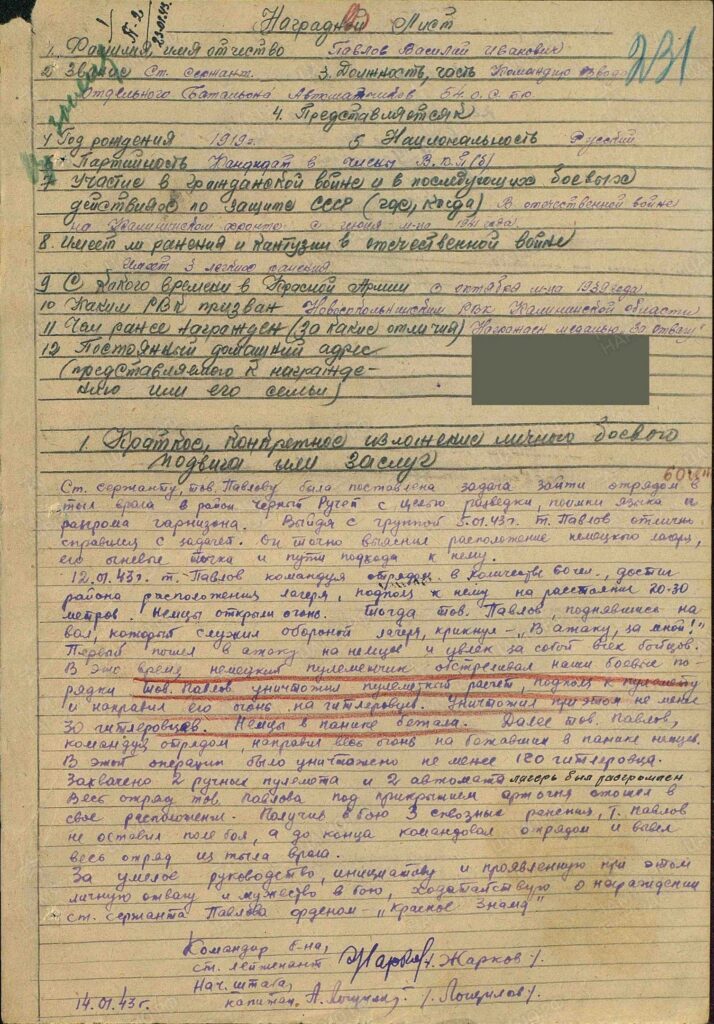 Наградной Лист
П-2
23.01.43.
231
1. Фамилия, имя отчество Павлов Василий Иванович
2 Звание Ст. сержант. 3. Должность, часть Командир взвода
Отдельного Батальона Автоматчиков 54 О.С.Бр
4. Представляется к
4 Год рождения 1919 г. 5 Национальность Русский
6. Партийность Кандидат в члены В.К.П(б)
7 Участие в гражданской войне и в последующих боевых
действиях по защите СССР (где, когда) В отечественной войне
на Калининском фронте с июня м-ца 1941 года
8. Имеет ли ранения и контузии в отечественной войне
Имеет 3 легких ранения
9 С какого времени в Красной Армии с октября м-ца 1939 года
10 Каким РВК призван Новосокольническим РВК Калининской области
11 Чем ранее награжден (за какие отличия) Награжден медалью "За отвагу"
12 Постоянный домашний адрес
(представляемого к награжде-
нию или его семьи)
1. Краткое, конкретное изложение личного боевого
подвига или заслуг
Ст. сержанту, тов. Павлову была поставлена задача зайти отрядом в
тыл врага в район Черный Ручей с целью разведки, поимки языка и
разгрома гарнизона. Выйдя с группой 5.01.43г. т. Павлов отлично
справился с задачей. Он точно выяснил расположение немецкого лагеря,
его огневые точки и пути подхода к нему.
12.01.43г. т. Павлов командуя отрядом в количестве 60 чел., достиг
района расположения лагеря, подполз к нему на расстояние 20-30
метров. Немцы открыли огонь. Тогда тов. Павлов, поднявшись на
вал, который служил обороной лагеря, крикнул - "В атаку, за мной!"
Первый пошел в атаку на немцев и увлек за собой всех бойцов.
В это время немецкий пулеметчик обстреливал наши боевые по-
рядки тов. Павлов уничтожил пулеметный расчет, подполз к пулемету
и направил его огонь на гитлеровцев. Уничтожил при этом не менее
30 гитлеровцев. Немцы в панике бежали. Далее тов. Павлов,
командуя отрядом, направил весь огонь на бежавших в панике немцев.
В этой операции было уничтожено не менее 120 гитлеровца.
Захвачено 2 ручных пулемета и 2 автомата лагерь был разгромлен
Весь отряд тов. Павлова под прикрытием артогня отошел в
свое расположение. Получив в бою 3 сквозных ранения, т. Павлов
не оставил поле боя, а до конца командовал отрядом и вывел
весь отряд из тыла врага.
За умелое руководство, инициативу и проявленную при этом
личную отвагу и мужество в бою, ходатайствую о награждении
ст. сержанта Павлова орденом - "Красное Знамя"
Командир б-на,
ст. лейтенант /Жарков/.
Нач. штаба,
14.01.43г. капитан